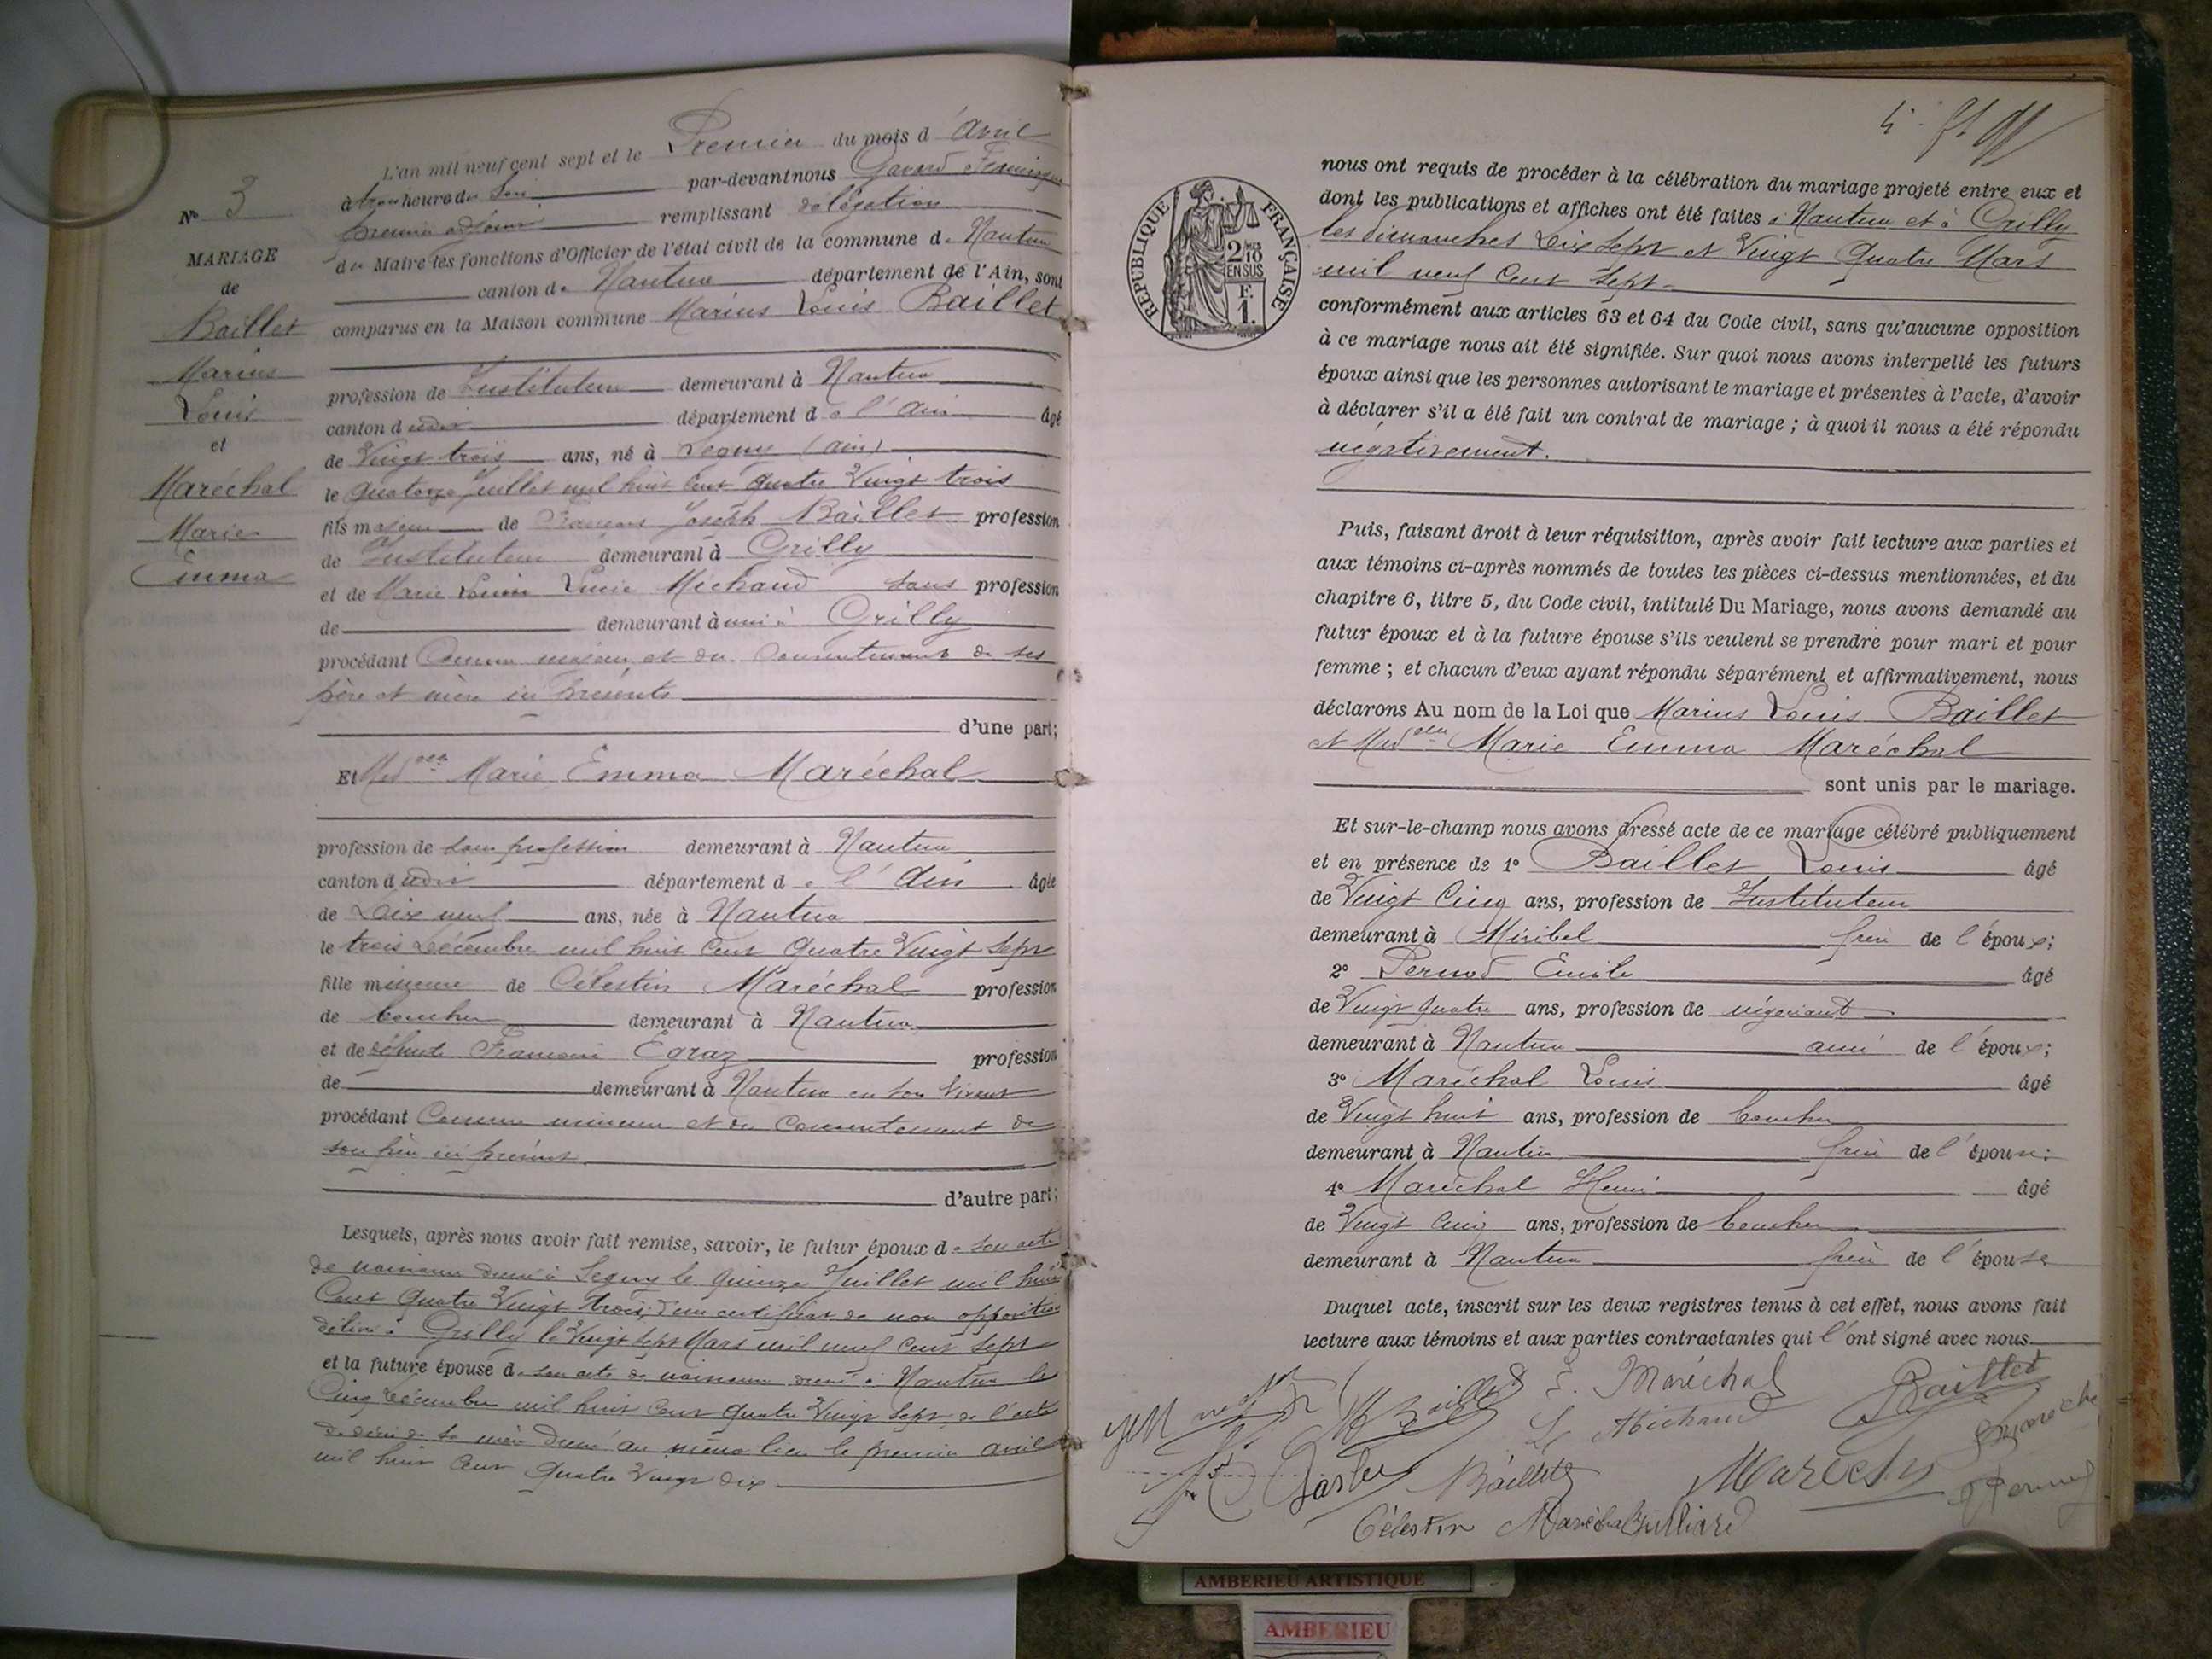 N° 3
MARIAGE
de
Baillet
Marius
Louis
et
Maréchal
Marie
Emma
L'an mil neuf cent sept et le Premier du mois d'Avril
à trois heure du Soir par-devant nous Gavard
premier adjoint remplissant délégation
du Maire les fonctions d'Officier de l'état civil de la commune de Nantua
canton de Nantua département de l'Ain, sont
comparus en la Maison commune Marius Louis Baillet
profession de Instituteur demeurant à Nantua
canton d udit département de l'Ain âgé
de Vingt trois ans, né à Segny (Ain)
le quatorze Juillet mil huit cent quatre Vingt trois
fils majeur de François Joseph Baillet profession
de Instituteur demeurant à Grilly
et de Marie Louise Lucie Michaud sans profession
de demeurant à Grilly
procédant Comme majeur et du Consentement de ses
père et mère ici présents
d'une part;
Et Medelle Marie Emma Maréchal
profession de sans profession demeurant à Nantua
canton d udit département de l'Ain âgée
de Dix neuf ans, née à Nantua
le trois Décembre mil huit cent quatre Vingt sept
fille mineure de Célestin Maréchal profession
de boucher demeurant à Nantua
et de défunte Egraz profession
de demeurant à Nantua en son Vivant
procédant Comme mineure et du Consentement de
son père ici présent
d'autre part;
Lesquels, après nous avoir fait remise, savoir, le futur époux de son acte
de naissance dressé à Segny le quinze Juillet mil huit
Cent quatre Vingt trois, d'un certificat de non opposition
délivré à Grilly le Vingt sept Mars mil neuf Cent sept
et la future épouse de son acte de naissance dressé à Nantua le
Cinq Décembre mil huit Cent quatre Vingt sept de l'acte
de décès de sa mère dressé au même lieu le premier avril
mil huit Cent quatre Vingt dix
REPUBLIQUE FRANÇAISE
2/10
EN SUS
F.
1.
nous ont requis de procéder à la célébration du mariage projeté entre eux et
dont les publications et affiches ont été faites à Nantua et à Grilly
les dimanches Dix Sept et Vingt Quatre Mars
mil neuf Cent Sept
conformément aux articles 63 et 64 du Code civil, sans qu'aucune opposition
à ce mariage nous ait été signifiée. Sur quoi nous avons interpellé les futurs
époux ainsi que les personnes autorisant le mariage et présentes à l'acte, d'avoir
à déclarer s'il a été fait un contrat de mariage ; à quoi il nous a été répondu
négativement.
Puis, faisant droit à leur réquisition, après avoir fait lecture aux parties et
aux témoins ci-après nommés de toutes les pièces ci-dessus mentionnées, et du
chapitre 6, titre 5, du Code civil, intitulé Du Mariage, nous avons demandé au
futur époux et à la future épouse s'ils veulent se prendre pour mari et pour
femme ; et chacun d'eux ayant répondu séparément et affirmativement, nous
déclarons Au nom de la Loi que Marius Louis Baillet
et Medelle Marie Emma Maréchal
sont unis par le mariage.
Et sur-le-champ nous avons dressé acte de ce mariage célébré publiquement
et en présence de 1° Baillet Louis âgé
de Vingt Cinq ans, profession de Instituteur
demeurant à Miribel frère de l'époux;
2° Pernod Emile âgé
de Vingt quatre ans, profession de négociant
demeurant à Nantua ami de l'époux;
3° Maréchal Louis âgé
de Vingt huit ans, profession de boucher
demeurant à Nantua frère de l'épouse;
4° Maréchal Henri âgé
de Vingt Cinq ans, profession de boucher
demeurant à Nantua frère de l'épouse
Duquel acte, inscrit sur les deux registres tenus à cet effet, nous avons fait
lecture aux témoins et aux parties contractantes qui l'ont signé avec nous.
M Baillet E. Maréchal Baillet
L Michaud
Baillet Maréchal
Célestin Maréchal Julliard
AMBERIEU ARTISTIQUE
AMBERIEU